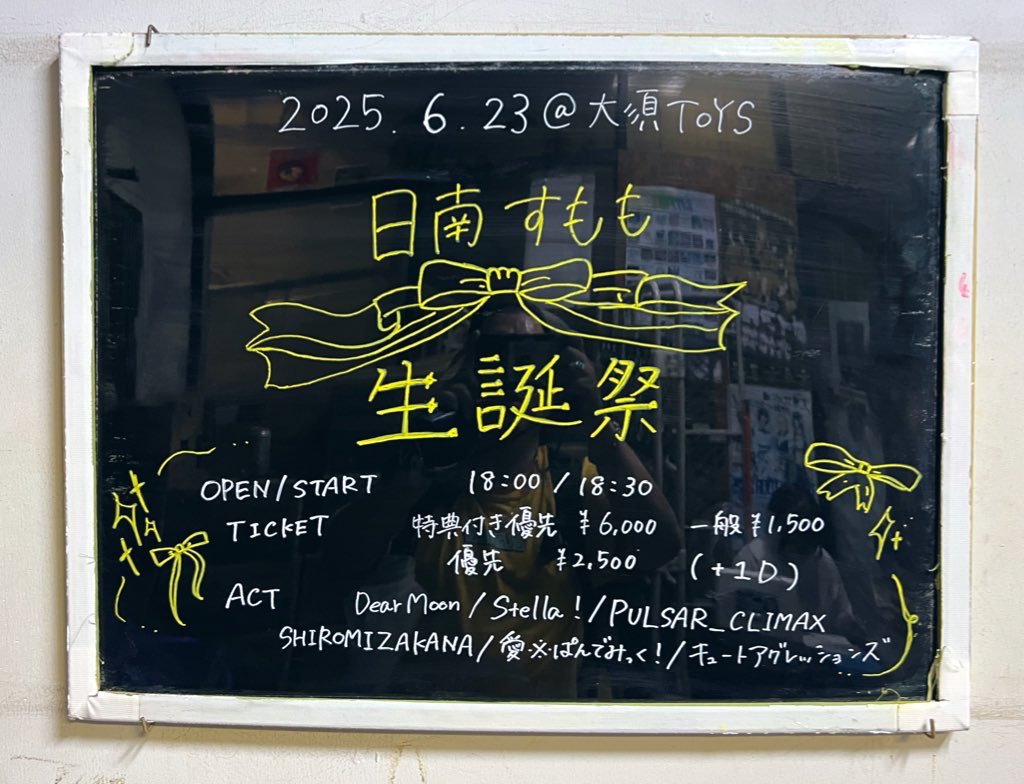 2025.6.23@大須ToYS
日南すもも
生誕祭
OPEN/START 18:00 / 18:30
TICKET 特典付き優先 ¥6,000 一般¥1,500
優先 ¥2,500 (+1D)
ACT DearMoon/Stella!/PULSAR_CLIMAX
SHIROMIZAKANA/愛※ぱんでみっく!/キュートアグレッションズ